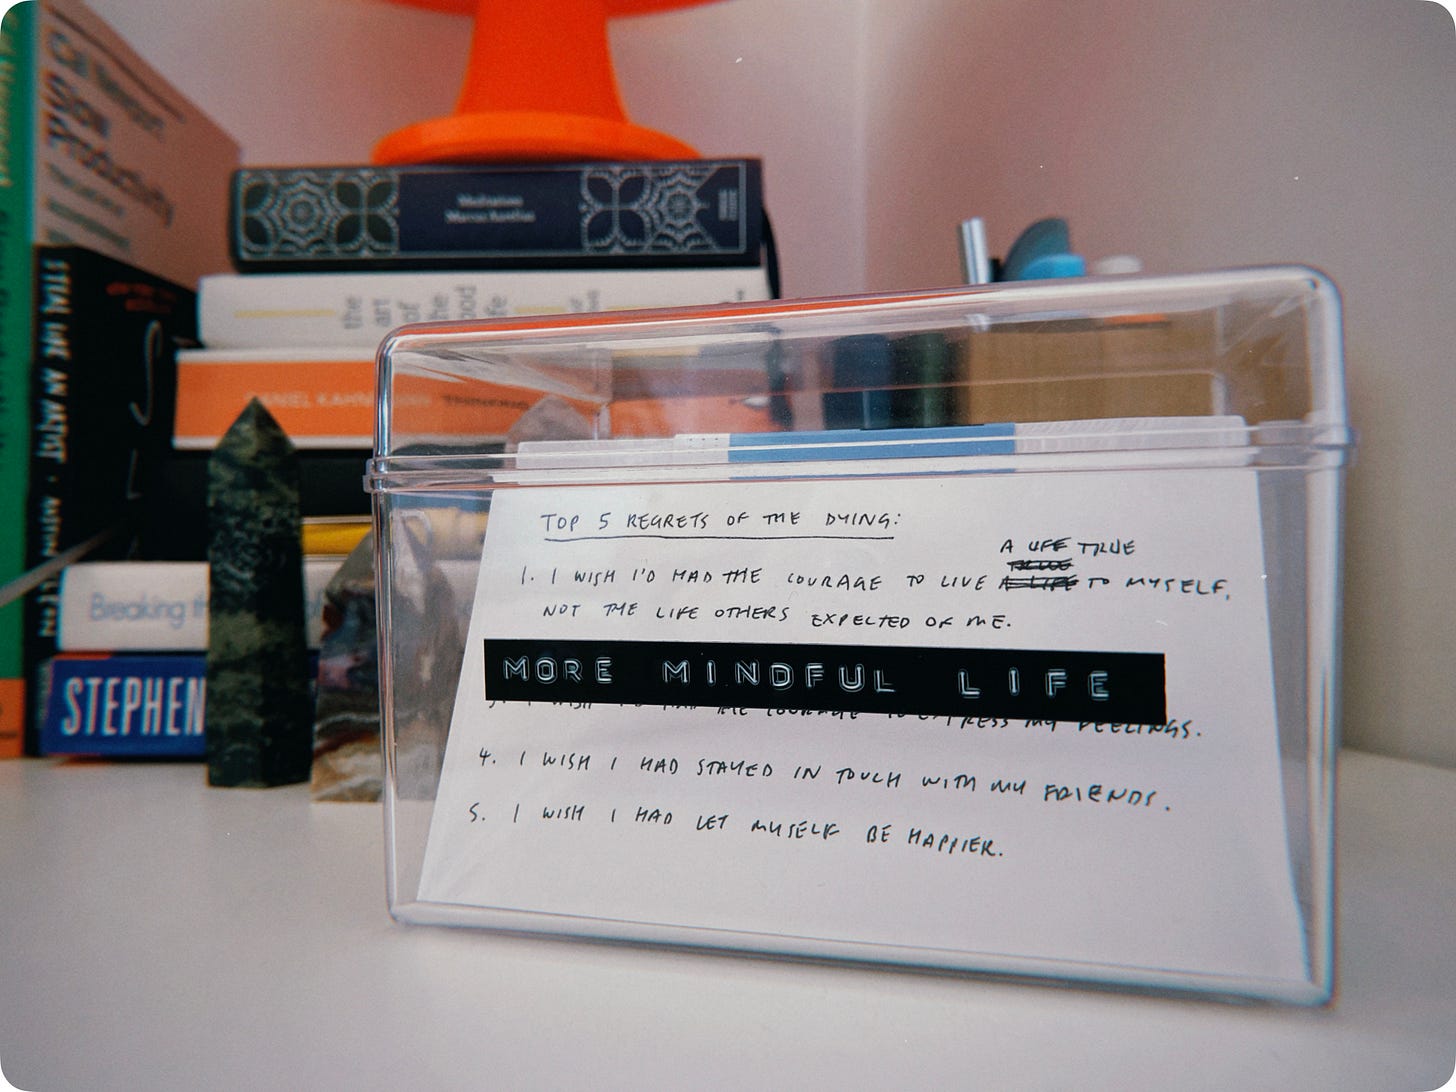 Cal Newport
Slow
Productivity
STEAL LIKE AN ARTIST
Meditations
Marcus Aurelius
the
art
of
the
good
life
DANIEL KAHNEMAN
Breaking th
STEPHEN
TOP 5 REGRETS OF THE DYING:
A LIFE TRUE
1. I WISH I'D HAD THE COURAGE TO LIVE TO MYSELF,
NOT THE LIFE OTHERS EXPECTED OF ME.
MORE MINDFUL LIFE
3. I WISH I'D HAD THE COURAGE TO EXPRESS MY FEELINGS.
4. I WISH I HAD STAYED IN TOUCH WITH MY FRIENDS.
5. I WISH I HAD LET MYSELF BE HAPPIER.